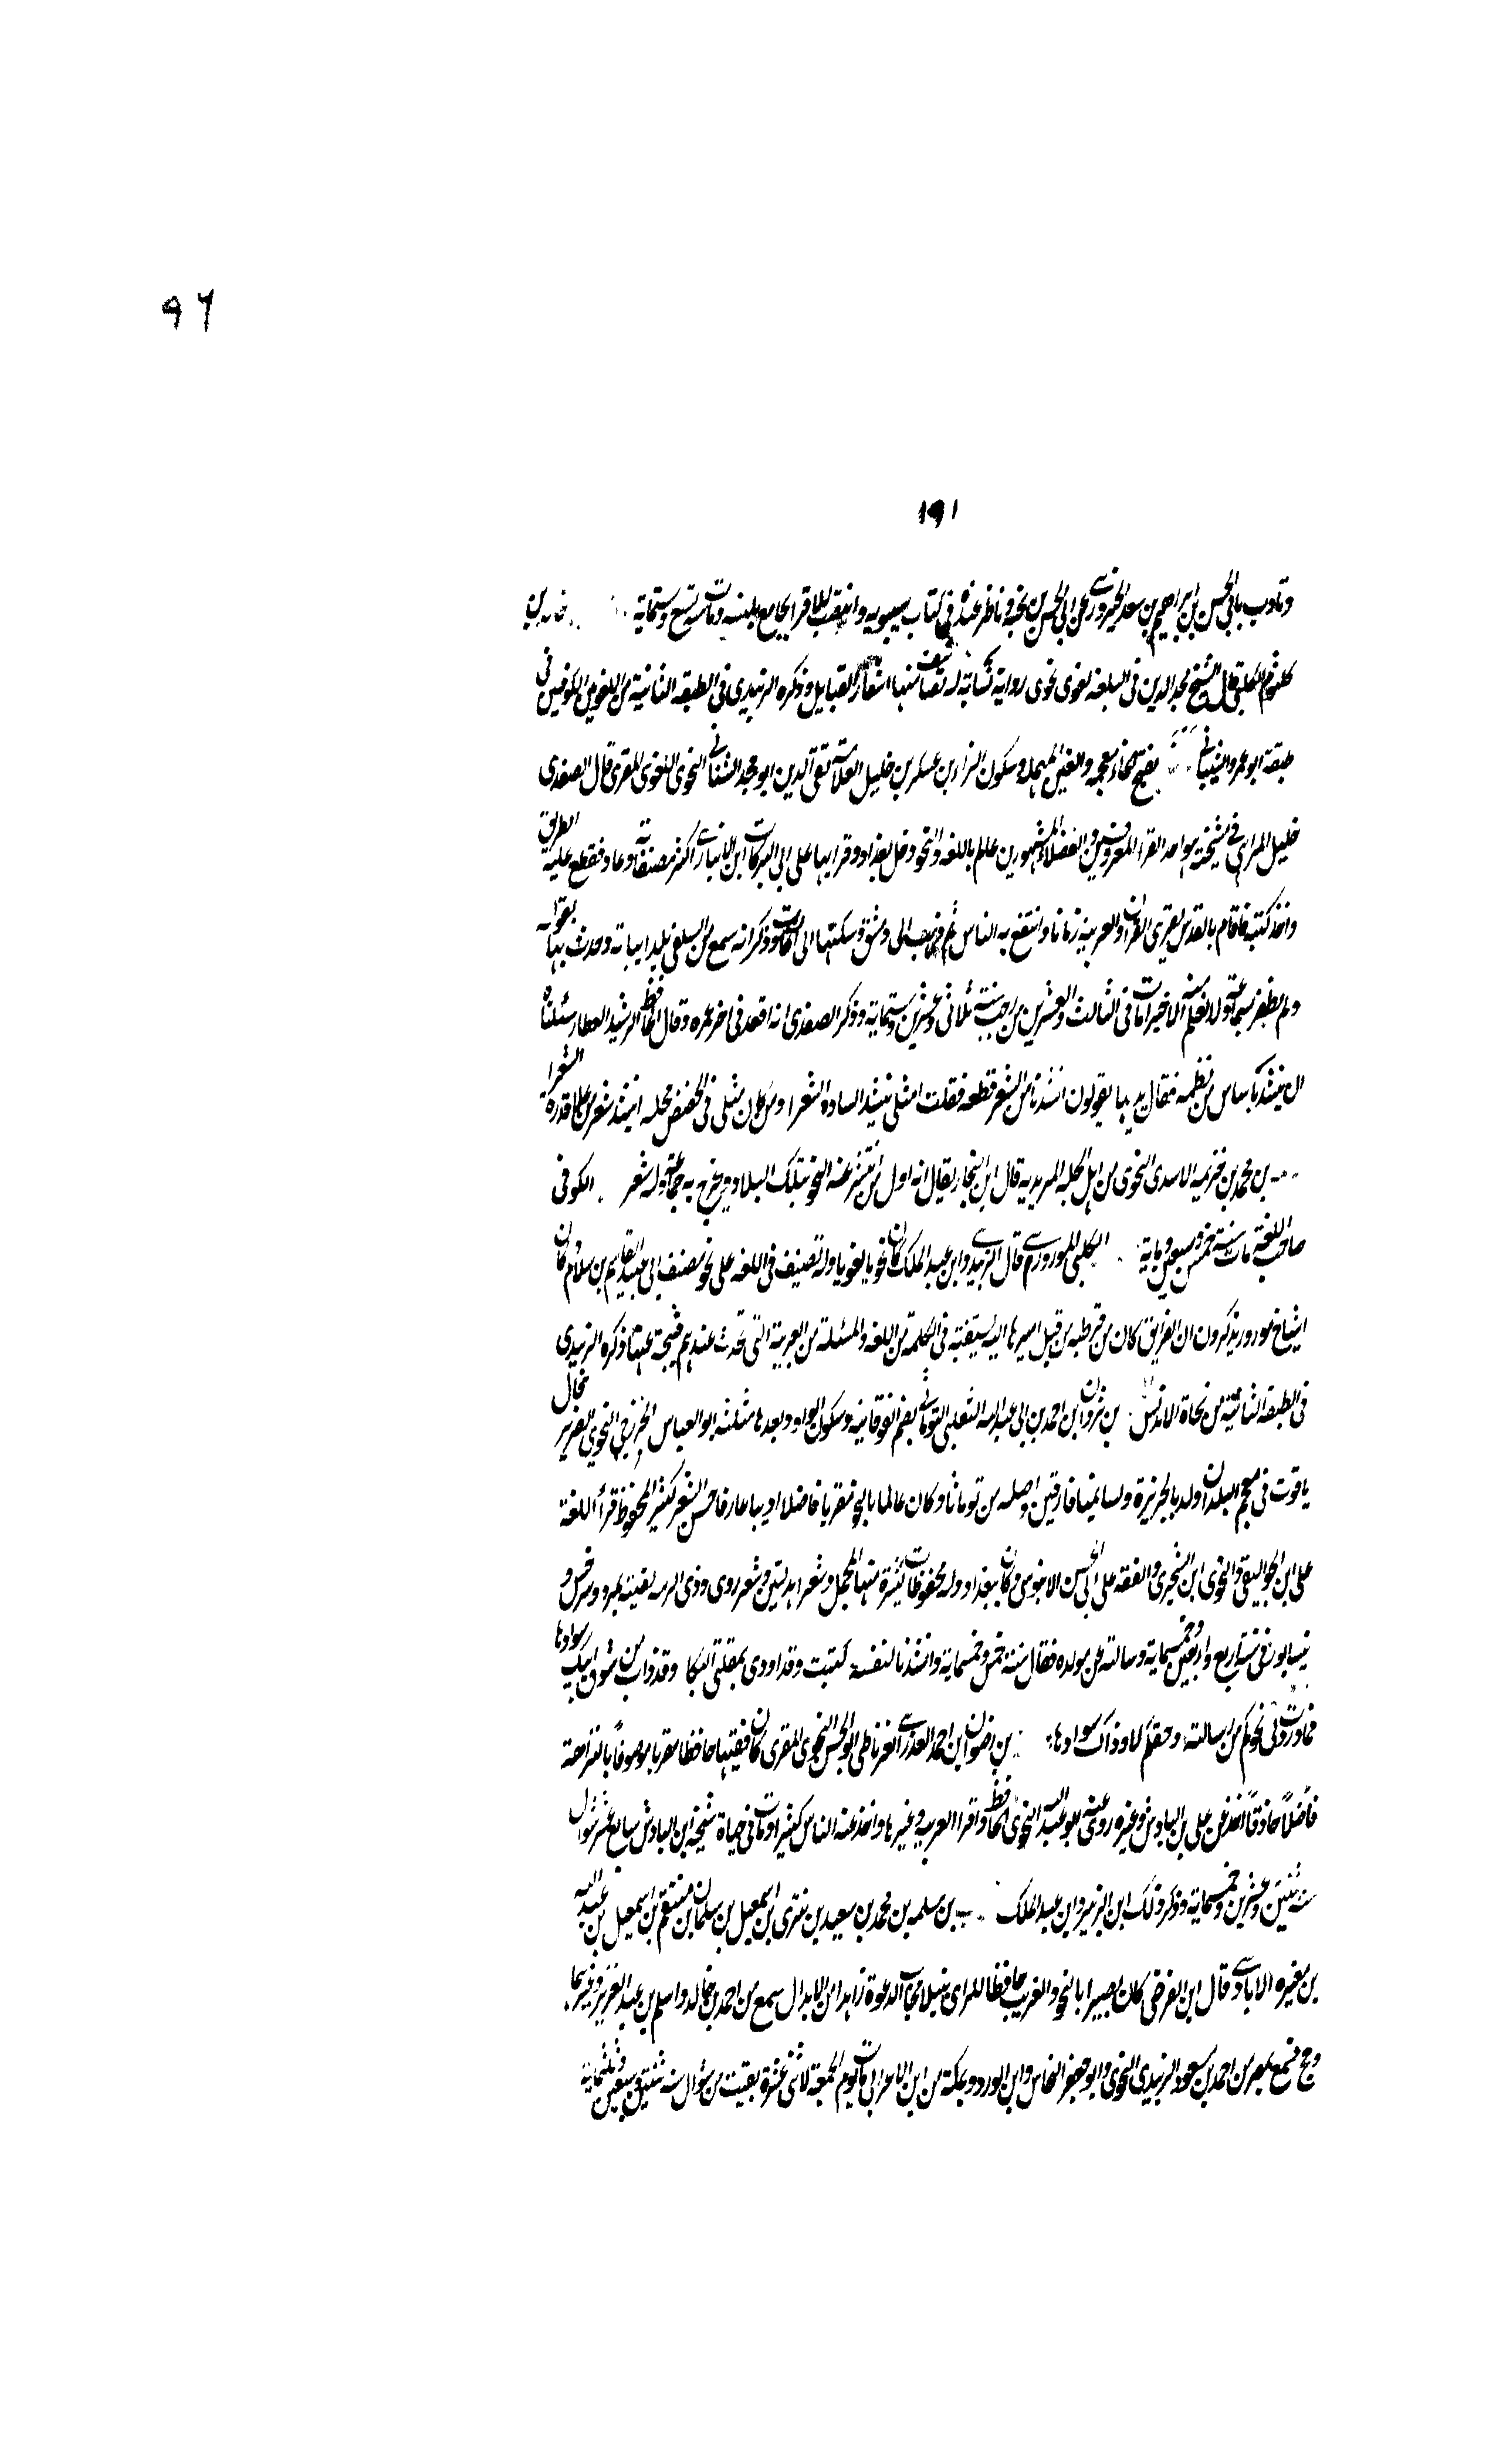 ٩٦
١٩١
وتادب بابي الحسن بن ابراهيم بن سعد الخير وروى عن ابي الحسن بن نخبة وناظر عنده في كتاب سيبويه وانتصب للاقراء بجامع بلنسية ومات سنة تسع وستماية خالد بن
كلثوم الكلبي قال الشيخ مجد الدين في البلغه لغوى نحوى رواية نسابة له تصانيف منها اشعار القبايل وذكره الزبيدي في الطبقه الثانية من اللغويين الكوفيين في
طبقة ابو عمرو الشيباني بفتح الخاء معجمه والعين المهمله وسكون الزاء بن عسكر بن خليل العلامة تقى الدين ابو محمد الشنائي النحوى اللغوى المقرى قال الصفدى
خليل المراى في مشيخته هو احد القراء المعروفين والفضلاء المشهورين عالم باللغه والنحو دخل بغداد وقرا بها على ابي البركات ابن الانباري اكثر مصنفاته وعاد فقطع عليه الطريق
واخذ كتبه فاقام بالقدس يقرى القران والعربية زمانا وانتفع به الناس ثم ذهب الى دمشق وسكنها الى ان مات وذكر انه سمع من السلفى
ولم يظفر بسماعه الا بعد مات في الثالث والعشرين من رجب سنة ثلاث وعشرين وستماية وذكر الصفدى انه اقعد في اخر عمره وقال الحافظ الرشيد العطار سئلناه
ان ينشدنا من نظمه فقال بديها يقولون انشدنا من الشعر قطعه فقلت امثلى ينشد الساده الشعرا ومن كان مثلى في الحضيض محله اينشد شعرا من علا قدره الشعرا
بن محمد بن خزيمه الاسدى النحوى من اهل الحله المزيديه قال ابن النجار يقال انه اول من انتشر عنه النحو بتلك البلاد وتخرج به جماعة وله شعر الكوفى
صاحب اللغة مات سنة خمس وسبعين وماية الكلبى المورورى قال الزبيدى وابن عبد الملك كان نحويا لغويا وله تصنيف في اللغه على نحو مصنف ابي عبيد القاسم بن سلام وكان
اشياخ مورور يذكرون ان الفريق كان من قرطبه من قبل اميرها اليه يستفتيه في الكلمة من اللغه والمسئلة من العربية التى تحدث عندهم فيجيب عنها ذكره الزبيدى
في الطبقه الثانية من نحاة الاندلس بن ثروان بن احمد بن ابي عبد الله الثعلبى التوماثى بضم الفوقانيه وسكون الواو وبعدها مثلثه ابو العباس الجزرى النحوى الضرير قال
ياقوت في معجم البلدان ولد بالجزيرة ونشا بميافارقين واصله من توماثا وكان عالما بالنحو مقريا فاضلا اديبا عارفا حسن الشعر كثير المحفوظ قرأ اللغة
على ابن الجواليقى والنحو على ابن الشجرى والفقه على ابي الحسن الابنوسى وكان ببغداد وله محفوظات كثيرة منها المجمل وشعر الهذليين وشعر رؤبة وذى الرمه لقيته بمرو وسرخس و
نيسابور في سنة اربع واربعين وخمسماية وسالته عن مولده فقال سنة خمس وخمسماية وانشدنا لنفسه كتبت وقد اودى بمقلتى البكا وقد ذاب من شوق اليك سوادها
فما وردت لى نحوكم من رسالة وحقكم الا وذاك سوادها بن رضوان بن احمد العذرى الغرناطى ابو الحسن النحوى المقرى كان فقيها حافظا مقريا موصوفا بالنزاهة
فاضلا حاذقا اخذ عن على بن الباذش وغيره روى عنه ابو عبد الله النميرى الحافظ واقرا العربيه وغيرها واخذ عنه الناس كثيرا ومات في حياة شيخه ابن الباذش سابع عشر شوال
سنة ثنتين وعشرين وخمسماية وذكر ذلك ابن الزبير وابن عبد الملك بن سلمه بن محمد بن سعيد بن بترى بن اسمعيل بن سليمان بن منتقم بن اسمعيل بن عبد الله
بن مغيره الايادى قال ابن الفرضى كان بصيرا بالنحو والغريب حافظا للراى نبيلا مجاب الدعوة زاهدا من الابدال سمع من احمد بن خالد واسلم بن عبد العزيز وغيرهما
وحج فسمع بمصر من احمد بن مسعود الزبيدى النحوى وابو جعفر النحاس وابن الورد وبمكة من ابن الاعرابى مات يوم الجمعة لاثنى عشرة بقيت من شوال سنة ثنتين وسبعين وثلثماية